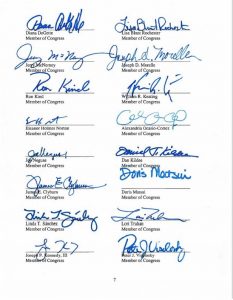 Diana DeGette
Member of Congress
Lisa Blunt Rochester
Member of Congress
Jerry McNerney
Member of Congress
Joseph D. Morelle
Joseph D. Morelle
Member of Congress
Ron Kind
Ron Kind
Member of Congress
William R. Keating
Member of Congress
Eleanor Holmes Norton
Member of Congress
Alexandria Ocasio-Cortez
Member of Congress
Joe Neguse
Member of Congress
Daniel T. Kildee
Dan Kildee
Member of Congress
James E. Clyburn
James E. Clyburn
Member of Congress
Doris Matsui
Doris Matsui
Member of Congress
Linda T. Sánchez
Member of Congress
Lori Trahan
Member of Congress
Joseph P. Kennedy, III
Member of Congress
Peter J. Visclosky
Member of Congress
7